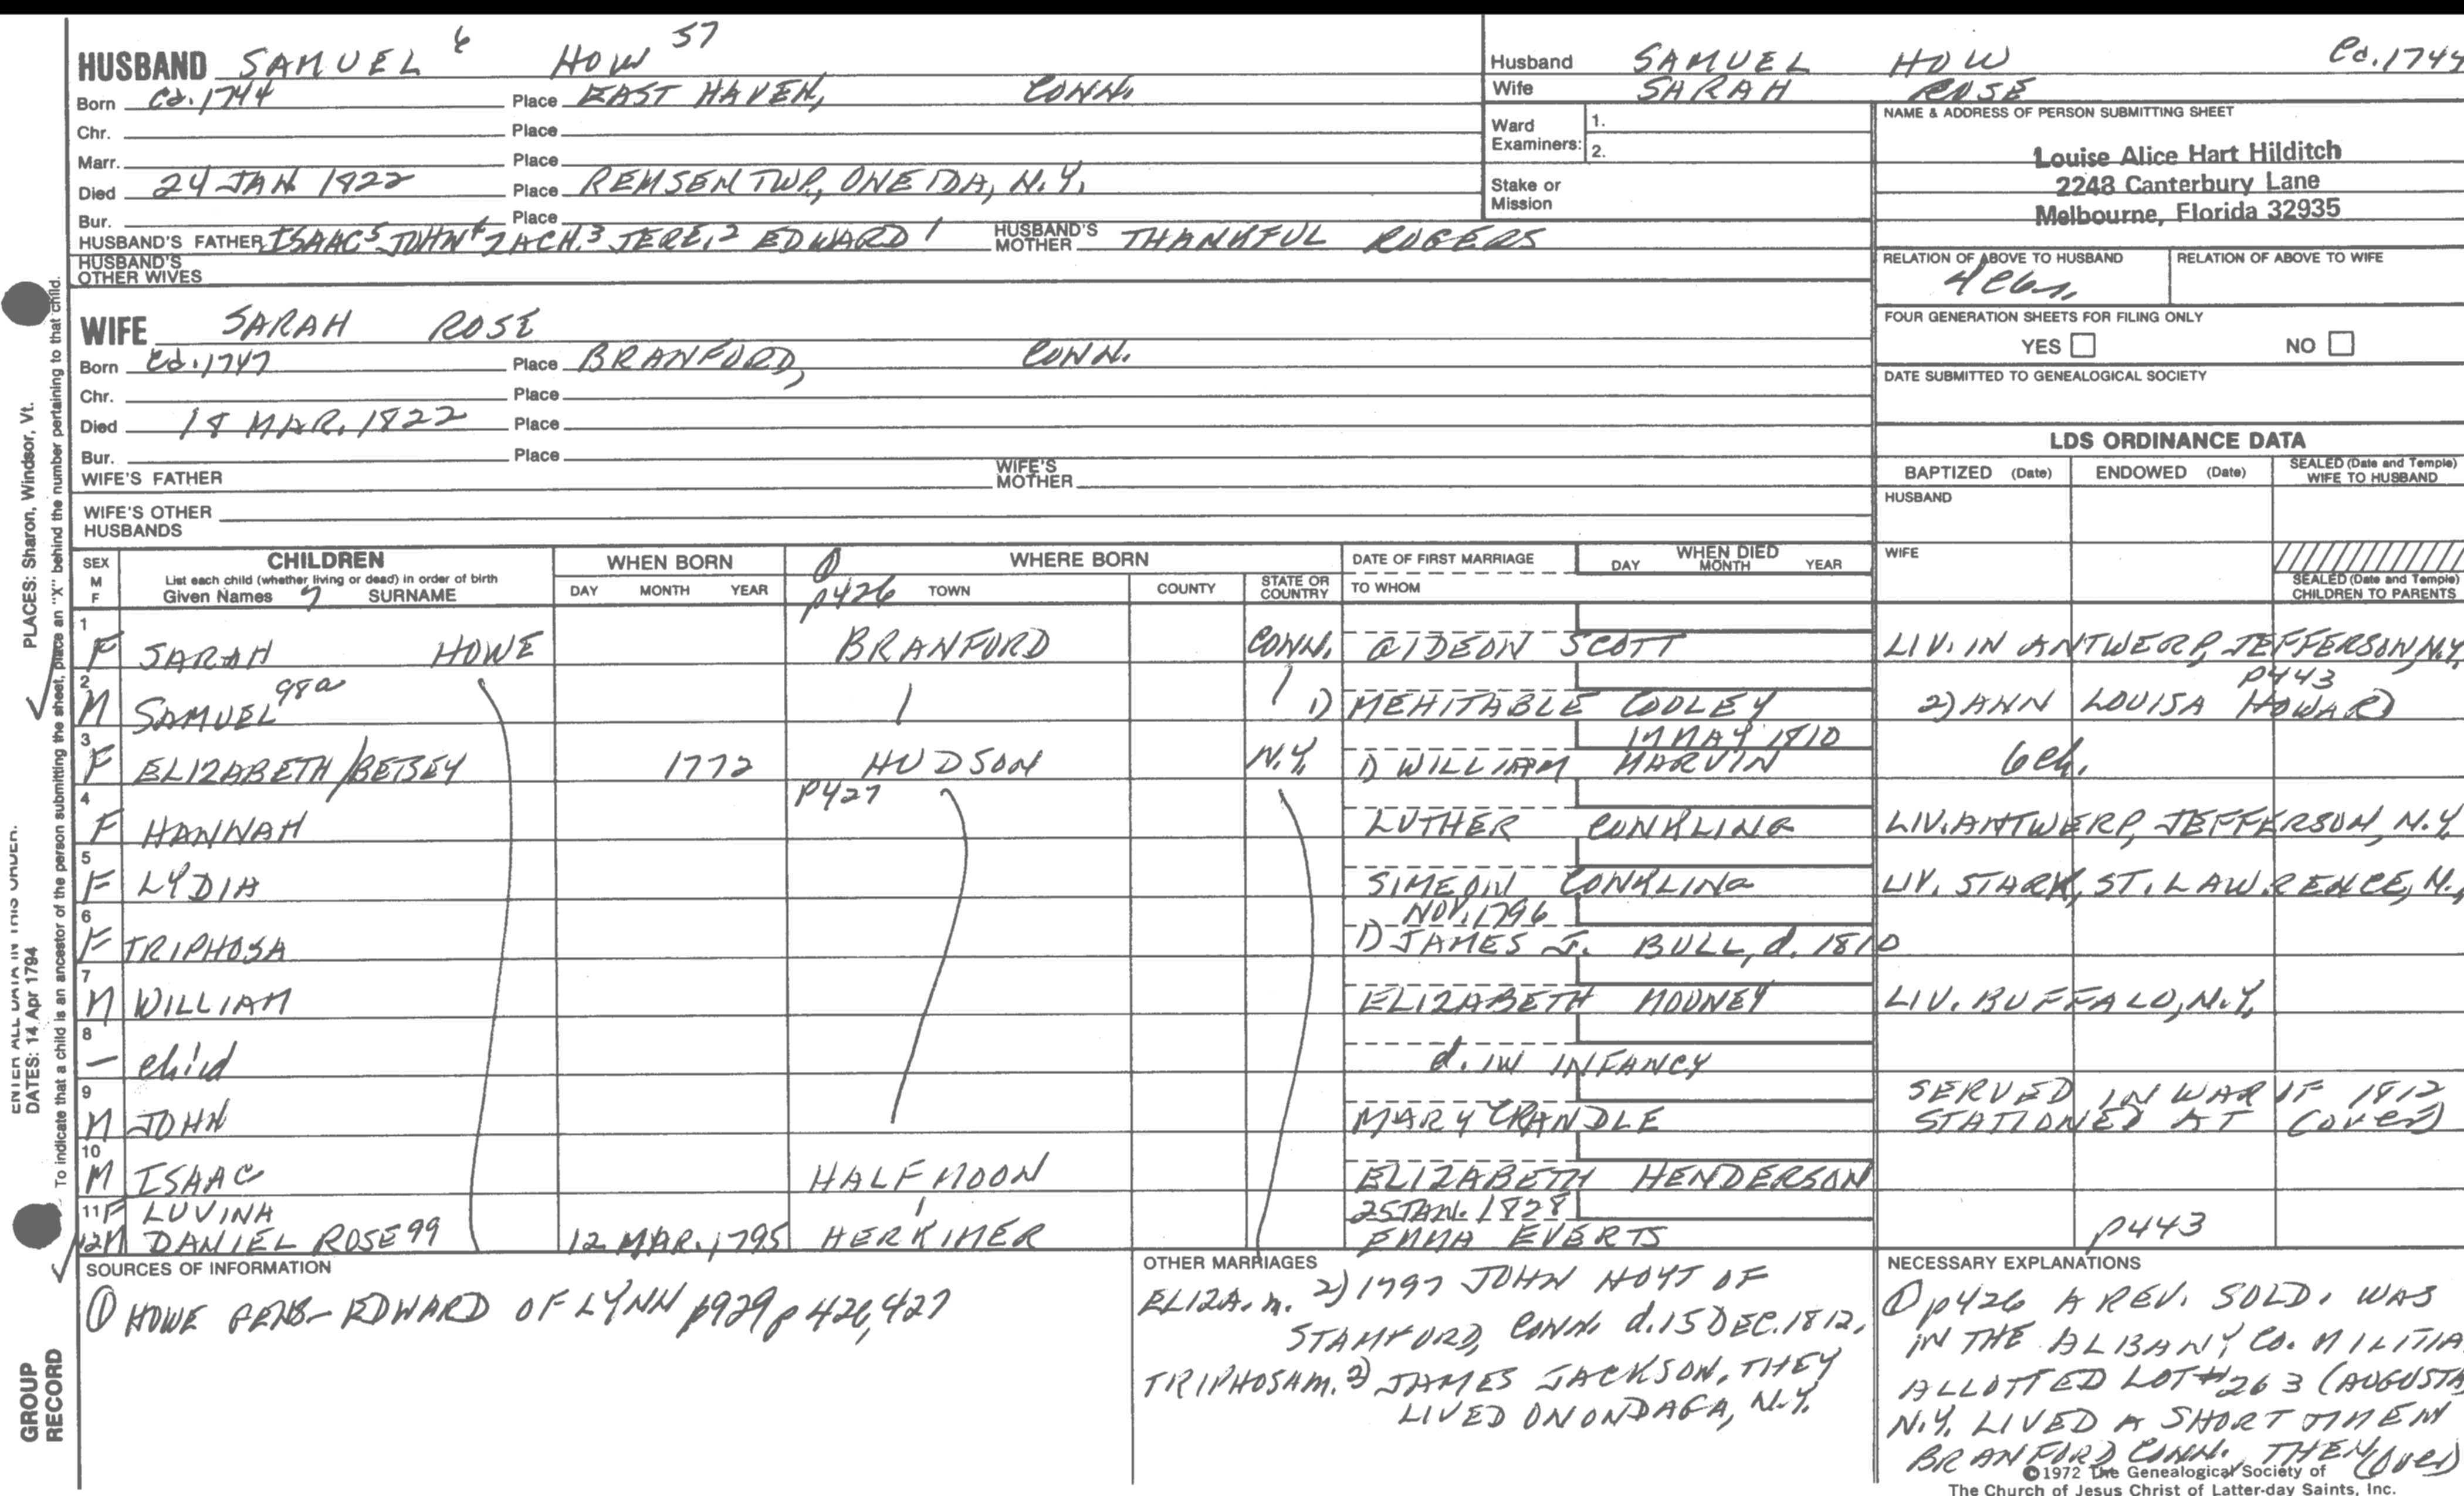 HUSBAND SAMUEL 6 HOW 57
Born Ca. 1744 Place EAST HAVEN, CONN.
Chr. Place
Marr. Place
Died 24 JAN. 1822 Place REMSEN TWP., ONEIDA, N.Y.
Bur. Place
HUSBAND'S FATHER ISAAC5 JOHN4 ZACH.3 JERE.2 EDWARD1 HUSBAND'S MOTHER THANKFUL ROGERS
HUSBAND'S OTHER WIVES
WIFE SARAH ROSE
Born Ca. 1747 Place BRANFORD, CONN.
Chr. Place
Died 18 MAR. 1822 Place
Bur. Place
WIFE'S FATHER WIFE'S MOTHER
WIFE'S OTHER HUSBANDS
Husband SAMUEL HOW Ca. 1744
Wife SARAH ROSE
Ward Examiners: 1.
2.
Stake or Mission
NAME & ADDRESS OF PERSON SUBMITTING SHEET
Louise Alice Hart Hilditch
2248 Canterbury Lane
Melbourne, Florida 32935
RELATION OF ABOVE TO HUSBAND RELATION OF ABOVE TO WIFE
FOUR GENERATION SHEETS FOR FILING ONLY
YES NO
DATE SUBMITTED TO GENEALOGICAL SOCIETY
LDS ORDINANCE DATA
BAPTIZED (Date) ENDOWED (Date) SEALED (Date and Temple) WIFE TO HUSBAND
HUSBAND
WIFE
SEALED (Date and Temple) CHILDREN TO PARENTS
SEX M F CHILDREN WHEN BORN WHERE BORN DATE OF FIRST MARRIAGE WHEN DIED
List each child (whether living or dead) in order of birth
Given Names 7 SURNAME DAY MONTH YEAR p426 TOWN COUNTY STATE OR COUNTRY TO WHOM DAY MONTH YEAR
1 F SARAH HOWE BRANFORD CONN. GIDEON SCOTT LIV. IN ANTWERP, JEFFERSON, N.Y.
2 M SAMUEL 98a 1) MEHITABLE COOLEY 2) ANN LOUISA HOWARD p443
3 F ELIZABETH/BETSEY 1772 HUDSON N.Y. 1) WILLIAM MARVIN MAY 1810 6 ch.
4 F HANNAH p427 LUTHER CONKLING LIV. ANTWERP, JEFFERSON, N.Y.
5 F LYDIA SIMEON CONKLING LIV. STARK, ST. LAWRENCE, N.
6 F TRIPHOSA NOV. 1796 1) JAMES J. BULL, d. 1810
7 M WILLIAM ELIZABETH MOONEY LIV. BUFFALO, N.Y.
8 – child d. IN INFANCY
9 M JOHN MARY CRANDLE SERVED IN WAR OF 1812 STATIONED AT (over)
10 M ISAAC HALF MOON ELIZABETH HENDERSON
11 F LUVINA
12 M DANIEL ROSE 99 12 MAR. 1795 HERKIMER 25 JAN. 1828 EMMA EVERTS p443
SOURCES OF INFORMATION
① HOWE GENS- EDWARD OF LYNN p929 p426, 427
OTHER MARRIAGES
ELIZA. m. 2) 1797 JOHN HOYT OF
STAMFORD, CONN. d. 15 DEC. 1812.
TRIPHOSA m. 2) JAMES JACKSON, THEY
LIVED ONONDAGA, N.Y.
NECESSARY EXPLANATIONS
① p426 A REV. SOLD. WAS
IN THE ALBANY CO. MILITIA.
ALLOTTED LOT #263 (AUGUSTA
N.Y. LIVED A SHORT TIME IN
BRANFORD CONN. THEN (over)
©1972 The Genealogical Society of
The Church of Jesus Christ of Latter-day Saints, Inc.
PLACES: Sharon, Windsor, Vt.
To indicate that a child is an ancestor of the person submitting the sheet, place an "X" behind the number pertaining to that child.
ENTER ALL DATA IN THIS ORDER.
DATES: 14 Apr 1794
GROUP
RECORD